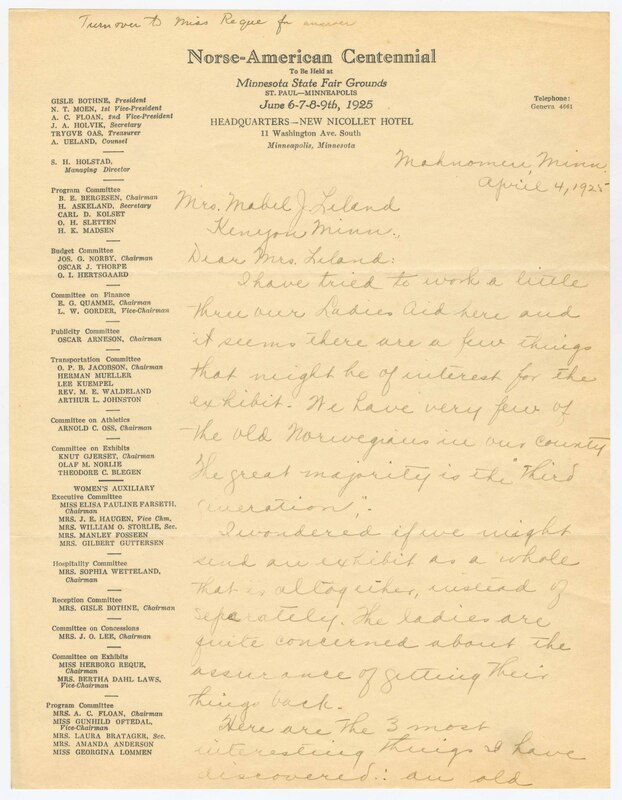 Turn over to Miss Reque for answer
Norse-American Centennial
To Be Held at
Minnesota State Fair Grounds
ST. PAUL—MINNEAPOLIS
June 6-7-8-9th, 1925
HEADQUARTERS—NEW NICOLLET HOTEL
11 Washington Ave. South
Minneapolis, Minnesota
Telephone:
Geneva 4661
GISLE BOTHNE, President
N. T. MOEN, 1st Vice-President
A. C. FLOAN, 2nd Vice-President
J. A. HOLVIK, Secretary
TRYGVE OAS, Treasurer
A. UELAND, Counsel
S. H. HOLSTAD,
Managing Director
Program Committee
B. E. BERGESEN, Chairman
H. ASKELAND, Secretary
CARL D. KOLSET
O. H. SLETTEN
H. K. MADSEN
Budget Committee
JOS. G. NORBY, Chairman
OSCAR J. THORPE
O. I. HERTSGAARD
Committee on Finance
E. G. QUAMME, Chairman
L. W. GORDER, Vice-Chairman
Publicity Committee
OSCAR ARNESON, Chairman
Transportation Committee
O. P. B. JACOBSON, Chairman
HERMAN MUELLER
LEE KUEMPEL
REV. M. E. WALDELAND
ARTHUR L. JOHNSTON
Committee on Athletics
ARNOLD C. OSS, Chairman
Committee on Exhibits
KNUT GJERSET, Chairman
OLAF M. NORLIE
THEODORE C. BLEGEN
WOMEN'S AUXILIARY
Executive Committee
MISS ELISA PAULINE FARSETH,
Chairman
MRS. J. E. HAUGEN, Vice Chm.
MRS. WILLIAM O. STORLIE, Sec.
MRS. MANLEY FOSSEEN
MRS. GILBERT GUTTERSEN
Hospitality Committee
MRS. SOPHIA WETTELAND,
Chairman
Reception Committee
MRS. GISLE BOTHNE, Chairman
Committee on Concessions
MRS. J. O. LEE, Chairman
Committee on Exhibits
MISS HERBORG REQUE,
Chairman
MRS. BERTHA DAHL LAWS,
Vice-Chairman
Program Committee
MRS. A. C. FLOAN, Chairman
MISS GUNHILD OFTEDAL,
Vice-Chairman
MRS. LAURA BRATAGER, Sec.
MRS. AMANDA ANDERSON
MISS GEORGINA LOMMEN
Mahnomen, Minn.
April 4, 1925
Mrs. Mabel J. Leland
Kenyon Minn.,
Dear Mrs. Leland:
I have tried to work a little
thru our Ladies Aid here and
it seems there are a few things
that might be of interest for the
exhibit. We have very few of
the old Norwegians in our county
The great majority is the "Third
Generation".
I wondered if we might
send an exhibit as a whole
that is altogether, instead of
separately. The ladies are
quite concerned about the
assurance of getting their
things back.
Here are the 3 most
interesting things I have
discovered: an old